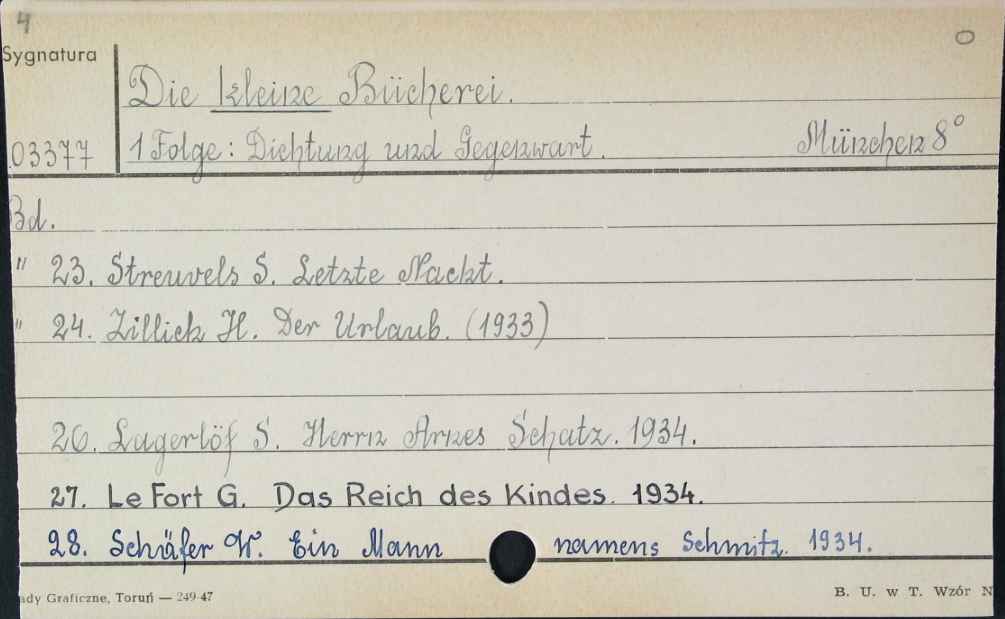 4
O
Sygnatura
Die kleine Bücherei.
03377
1 Folge: Dichtung und Gegenwart. München 8°
Bd.
" 23. Streuvels S. Letzte Nackt.
" 24. Zillich H. Der Urlaub. (1933)
26. Lagerlöf S. Herrn Arnes Schatz. 1934.
27. Le Fort G. Das Reich des Kindes. 1934.
28. Schäfer W. Ein Mann namens Schmitz. 1934.
ady Graficzne, Toruń — 249-47
B. U. w T. Wzór N